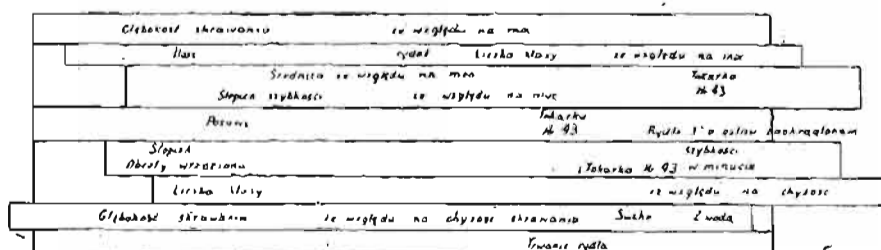 Głębokość skrawania ze względu na max
Klasy rydel Liczba klasy ze względu na max
Średnica ze względu na max Tokarka
Stopień szybkości ze względu na moc № 43
Posuwy Tokarka
№ 43 Rydle 1" o ostrzu zaokrąglonem
Stopień szybkości
Obroty wrzeciona Tokarka № 43 w minucie
Liczba klasy ze względu na chyżość
Głębokość skrawania ze względu na chyżość skrawania Sucho Z wodą
Trwanie rydla